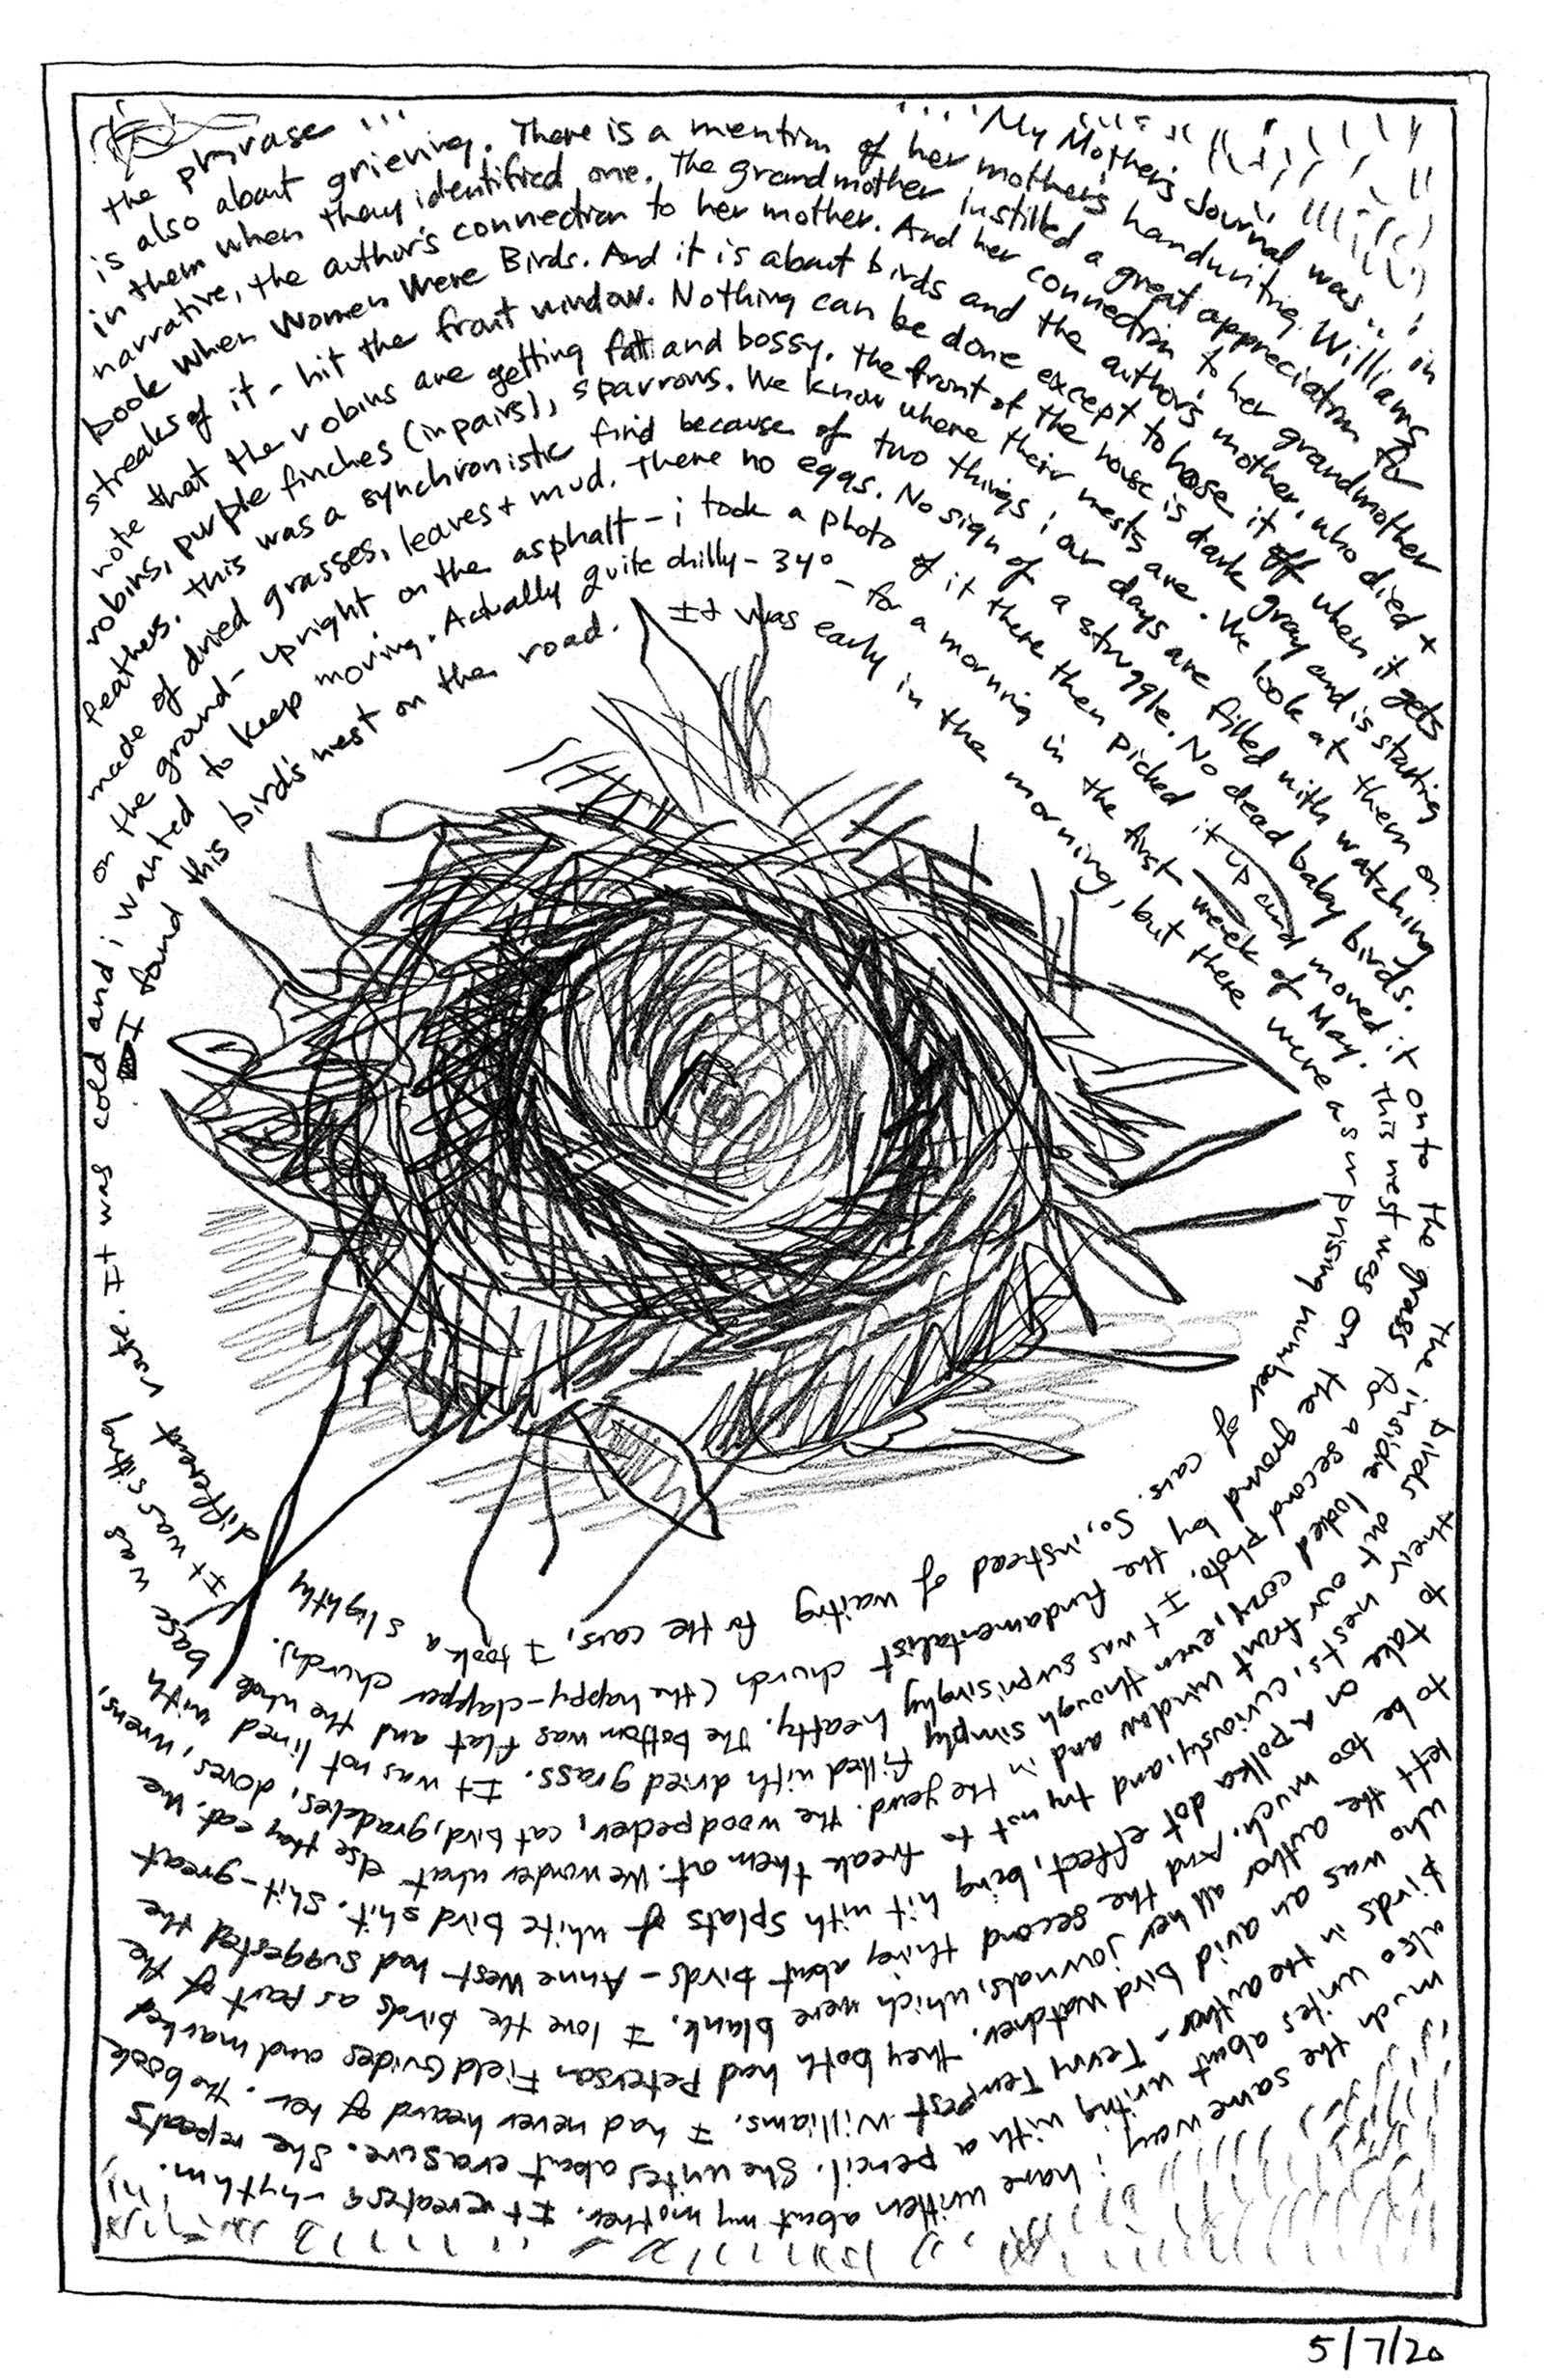 I found this bird's nest on the road. It was early in the morning, but there were a surprising number of cars. So, instead of waiting for the cars, I took a slightly different rate.
It was cold and i wanted to keep moving. Actually quite chilly - 34° - for a morning in the first week of May. This nest was on the ground by the fundamentalist church (the happy-clapper church). It was sitting
on the ground - upright on the asphalt - i took a photo of it there then picked it up and moved it onto the grass for a second photo. It was surprisingly hefty. The bottom was flat and the whole base was
made of dried grasses, leaves + mud. There no eggs. No sign of a struggle. No dead baby birds. The inside looked cozy, even though simply filled with dried grass. It was not lined with
feathers. This was a synchronistic find because of two things; our days are filled with watching birds out our front window and in the yard. The woodpecker, cat bird, grackles, doves, wrens,
robins, purple finches (in pairs), sparrows. We know where their nests are. We look at them on their nests, curiously, and try not to freak them out. We wonder what else they eat. We
note that the robins are getting fatt and bossy. The front of the house is dark gray and is starting to take on a polka dot effect, being hit with splats of white bird shit. Shit-great
streaks of it - hit the front window. Nothing can be done except to hose it off when it gets to be too much. And the second thing about birds - Anne West had suggested the
book When Women Were Birds. And it is about birds and the author's mother, who died + left the author all her journals, which were blank. I love the birds as part of the
narrative, the author's connection to her mother. And her connection to her grandmother who was an avid bird watcher. They both had Peterson Field Guides and marked
in them when they identified one. The grandmother instilled a great appreciation for birds in the author - Terry Tempest Williams. I had never heard of her. The book
is also about grieving. There is a mention of her mother's handwriting. Williams also writes about writing with a pencil. She writes about erasure. She repeats
the phrase ... ...."My Mother's Journal was... in much the same way i have written about my mother. It creates a rhythm.
5/7/20